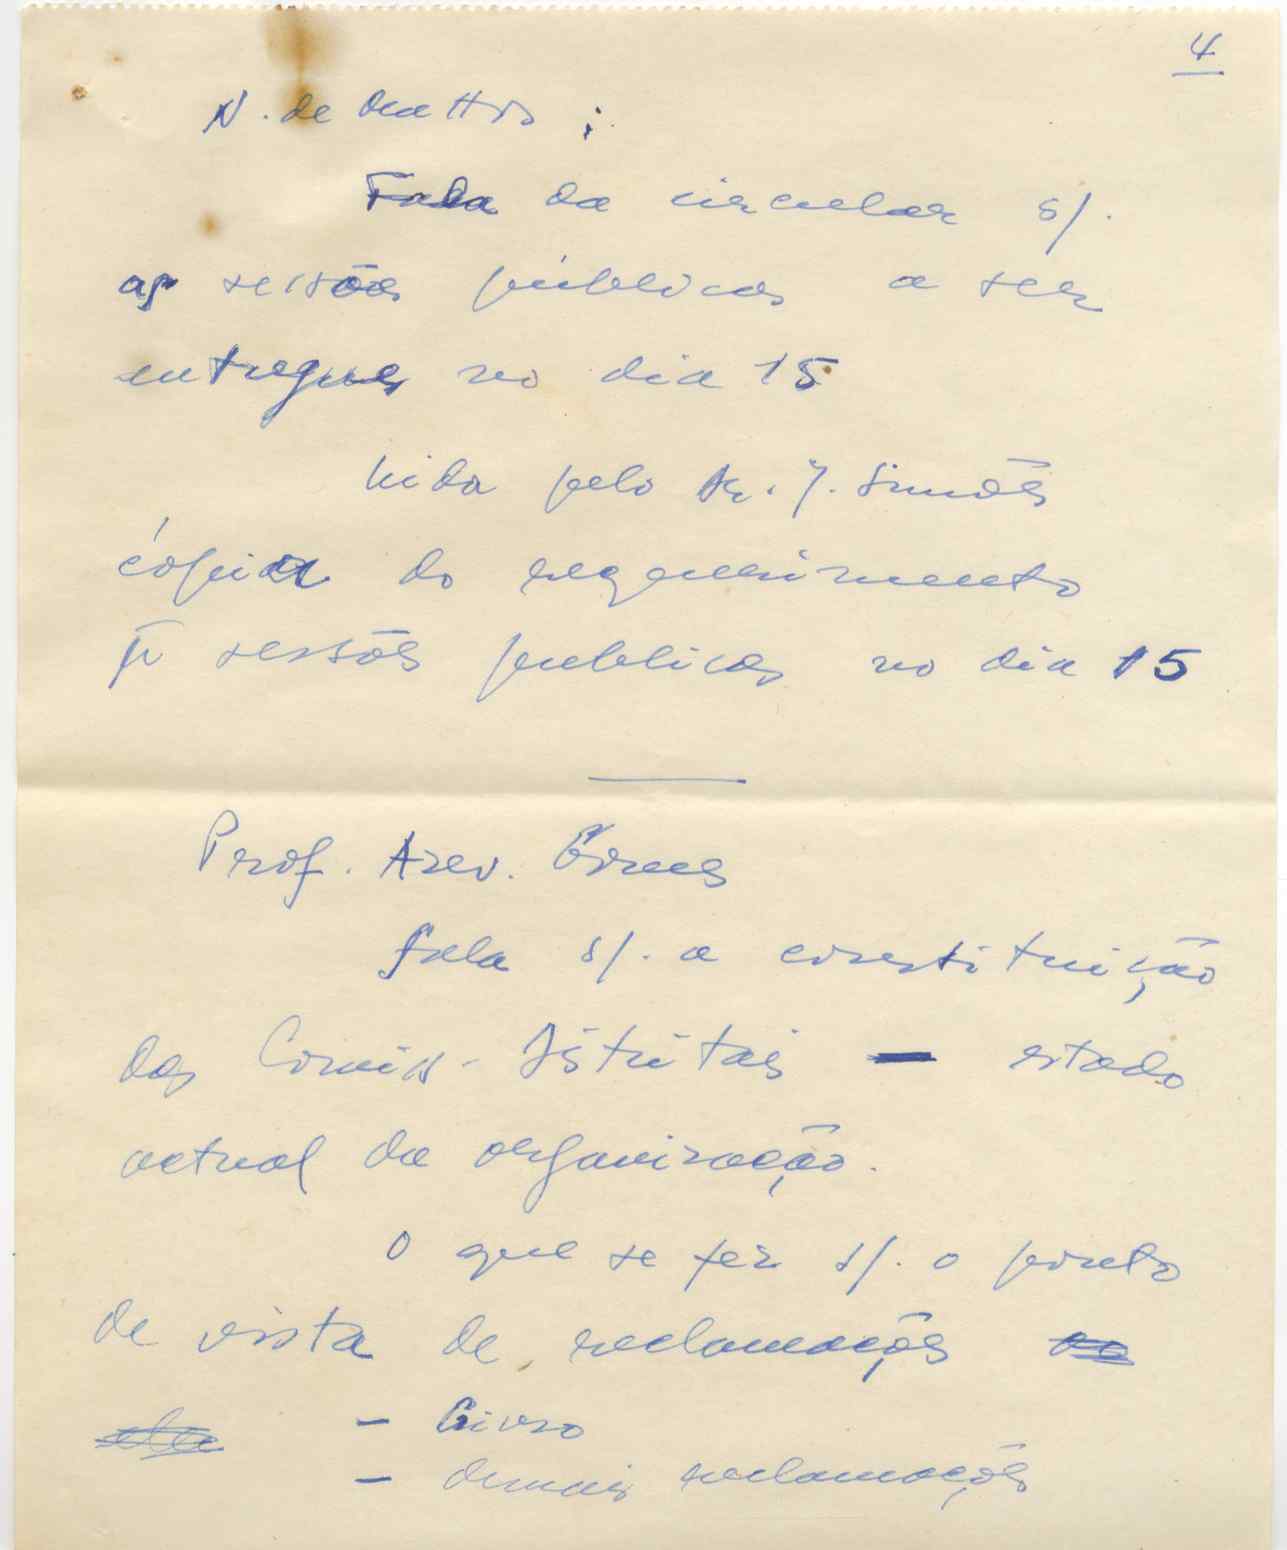 4
N. de Mattos:
Fala da circular s/.
as sessões públicas a ser
entregues no dia 15
Lida pelo Dr. J. Simões
cópia do requerimento
p.ª sessões publicas no dia 15
Prof. Azev. Gomes
fala s/. a constituição
das Comiss. Distritais — estado
actual da organização.
O que se fez s/. o ponto
de vista de reclamações
- Livro
- demais reclamações